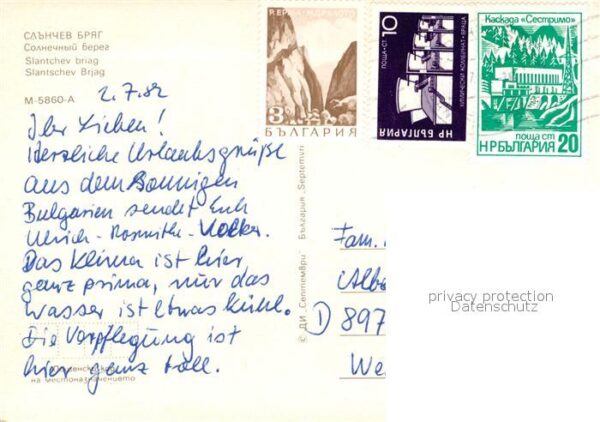 СЛЪНЧЕВ БРЯГ
Солнечный берег
Slantchev briag
Slantschev Brjag
М-5860-А
2.7.82
Ihr Lieben!
Herzliche Urlaubsgrüße
aus dem sonnigen
Bulgarien sendet Euch
Ulrich - Roswitha - Volker.
Das Klima ist hier
ganz prima, nur das
Wasser ist etwas kühl.
Die Verpflegung ist
hier ganz toll.
на местоназначението
© ДИ „Септември" България „Septemvri
3
БЪЛГАРИЯ
ПОЩА·СТ. 10
ХИМИЧЕСКИ КОМБИНАТ - ВРАЦА
НР БЪЛГАРИЯ
Каскада "Сестримо"
поща ст
НР БЪЛГАРИЯ 20
Fam.
Albe
D 897
We
privacy protection
Datenschutz